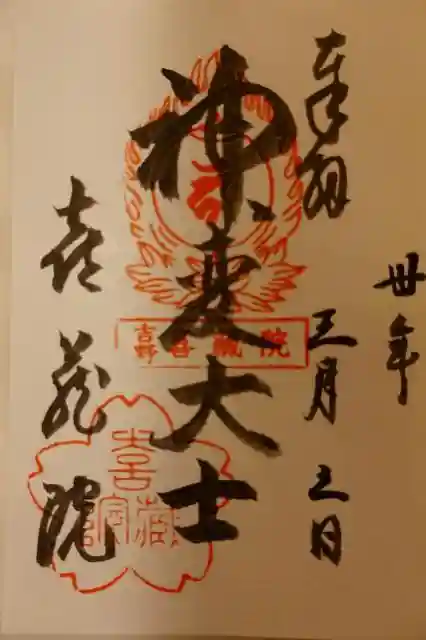 卅年
奉拝
三月三日
神変大士
喜蔵院
喜蔵院
喜蔵院